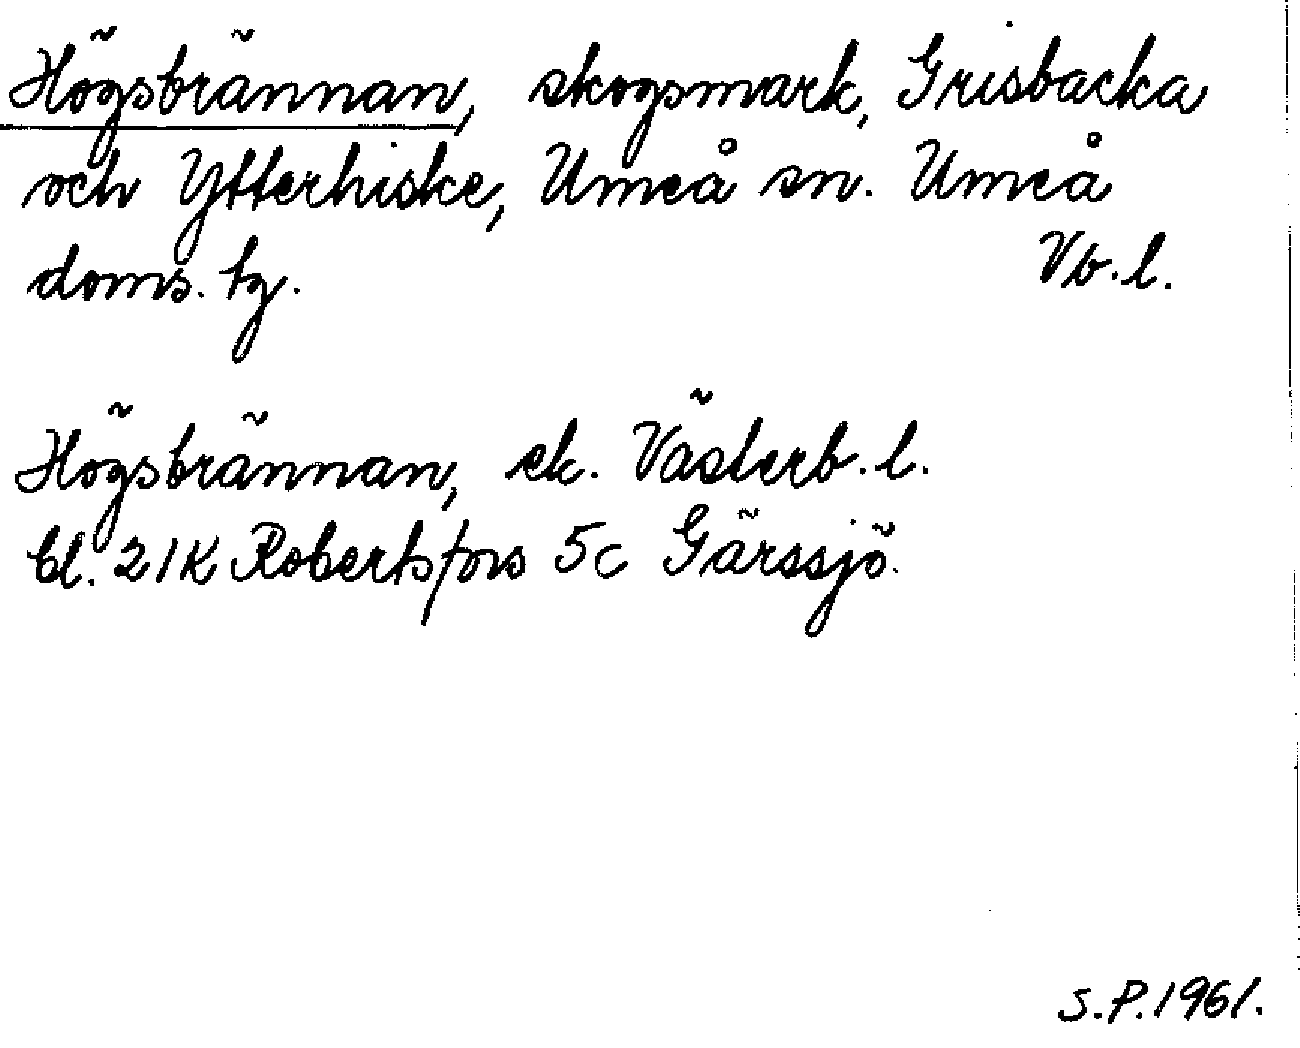 Högsbrännan, skogsmark, Grisbacka
och Ytterhiske, Umeå sn. Umeå
doms. tg. Vb. l.
Högsbrännan, ek. Västerb. l.
bl. 21K Robertsfors 5c Gärssjö.
S.P. 1961.